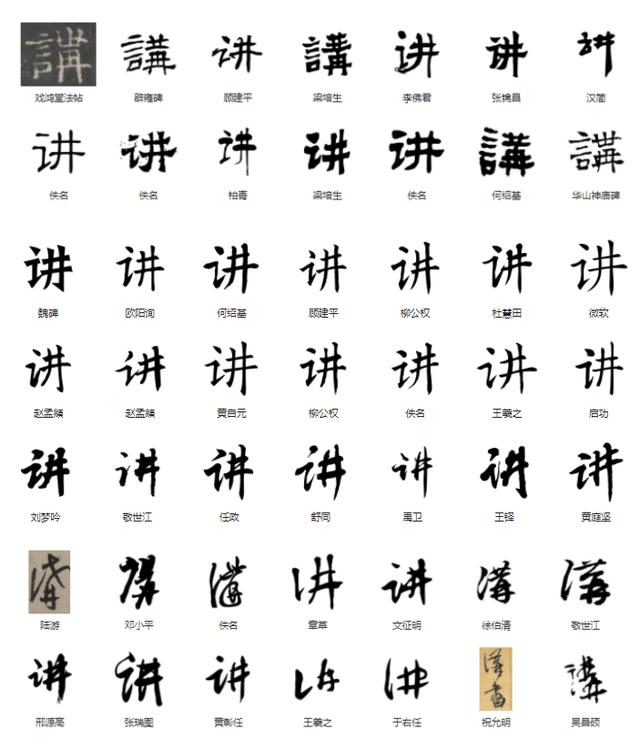 講 講 讲 講 讲 讲 讲
戏鸿堂法帖 辟雍碑 顾建平 梁培生 李佛君 汉简
讲 讲 讲 讲 讲 講 講
佚名 佚名 柏青 梁培生 佚名 何绍基 华山神庙碑
讲 讲 讲 讲 讲 讲 讲
魏碑 欧阳询 何绍基 顾建平 柳公权 杜慧田 微软
讲 讲 讲 讲 讲 讲 讲
赵孟頫 赵孟頫 黄自元 柳公权 佚名 王羲之 启功
讲 讲 讲 讲 讲 讲 讲
刘梦吟 敬世江 任政 舒同 禹卫 王铎 黄庭坚
講 講 講 讲 讲 講 講
陆游 邓小平 佚名 章草 文征明 徐伯清 敬世江
讲 讲 讲 讲 讲 講書 講
邢源高 张瑞图 黄彰任 王羲之 于右任 祝允明 吴昌硕